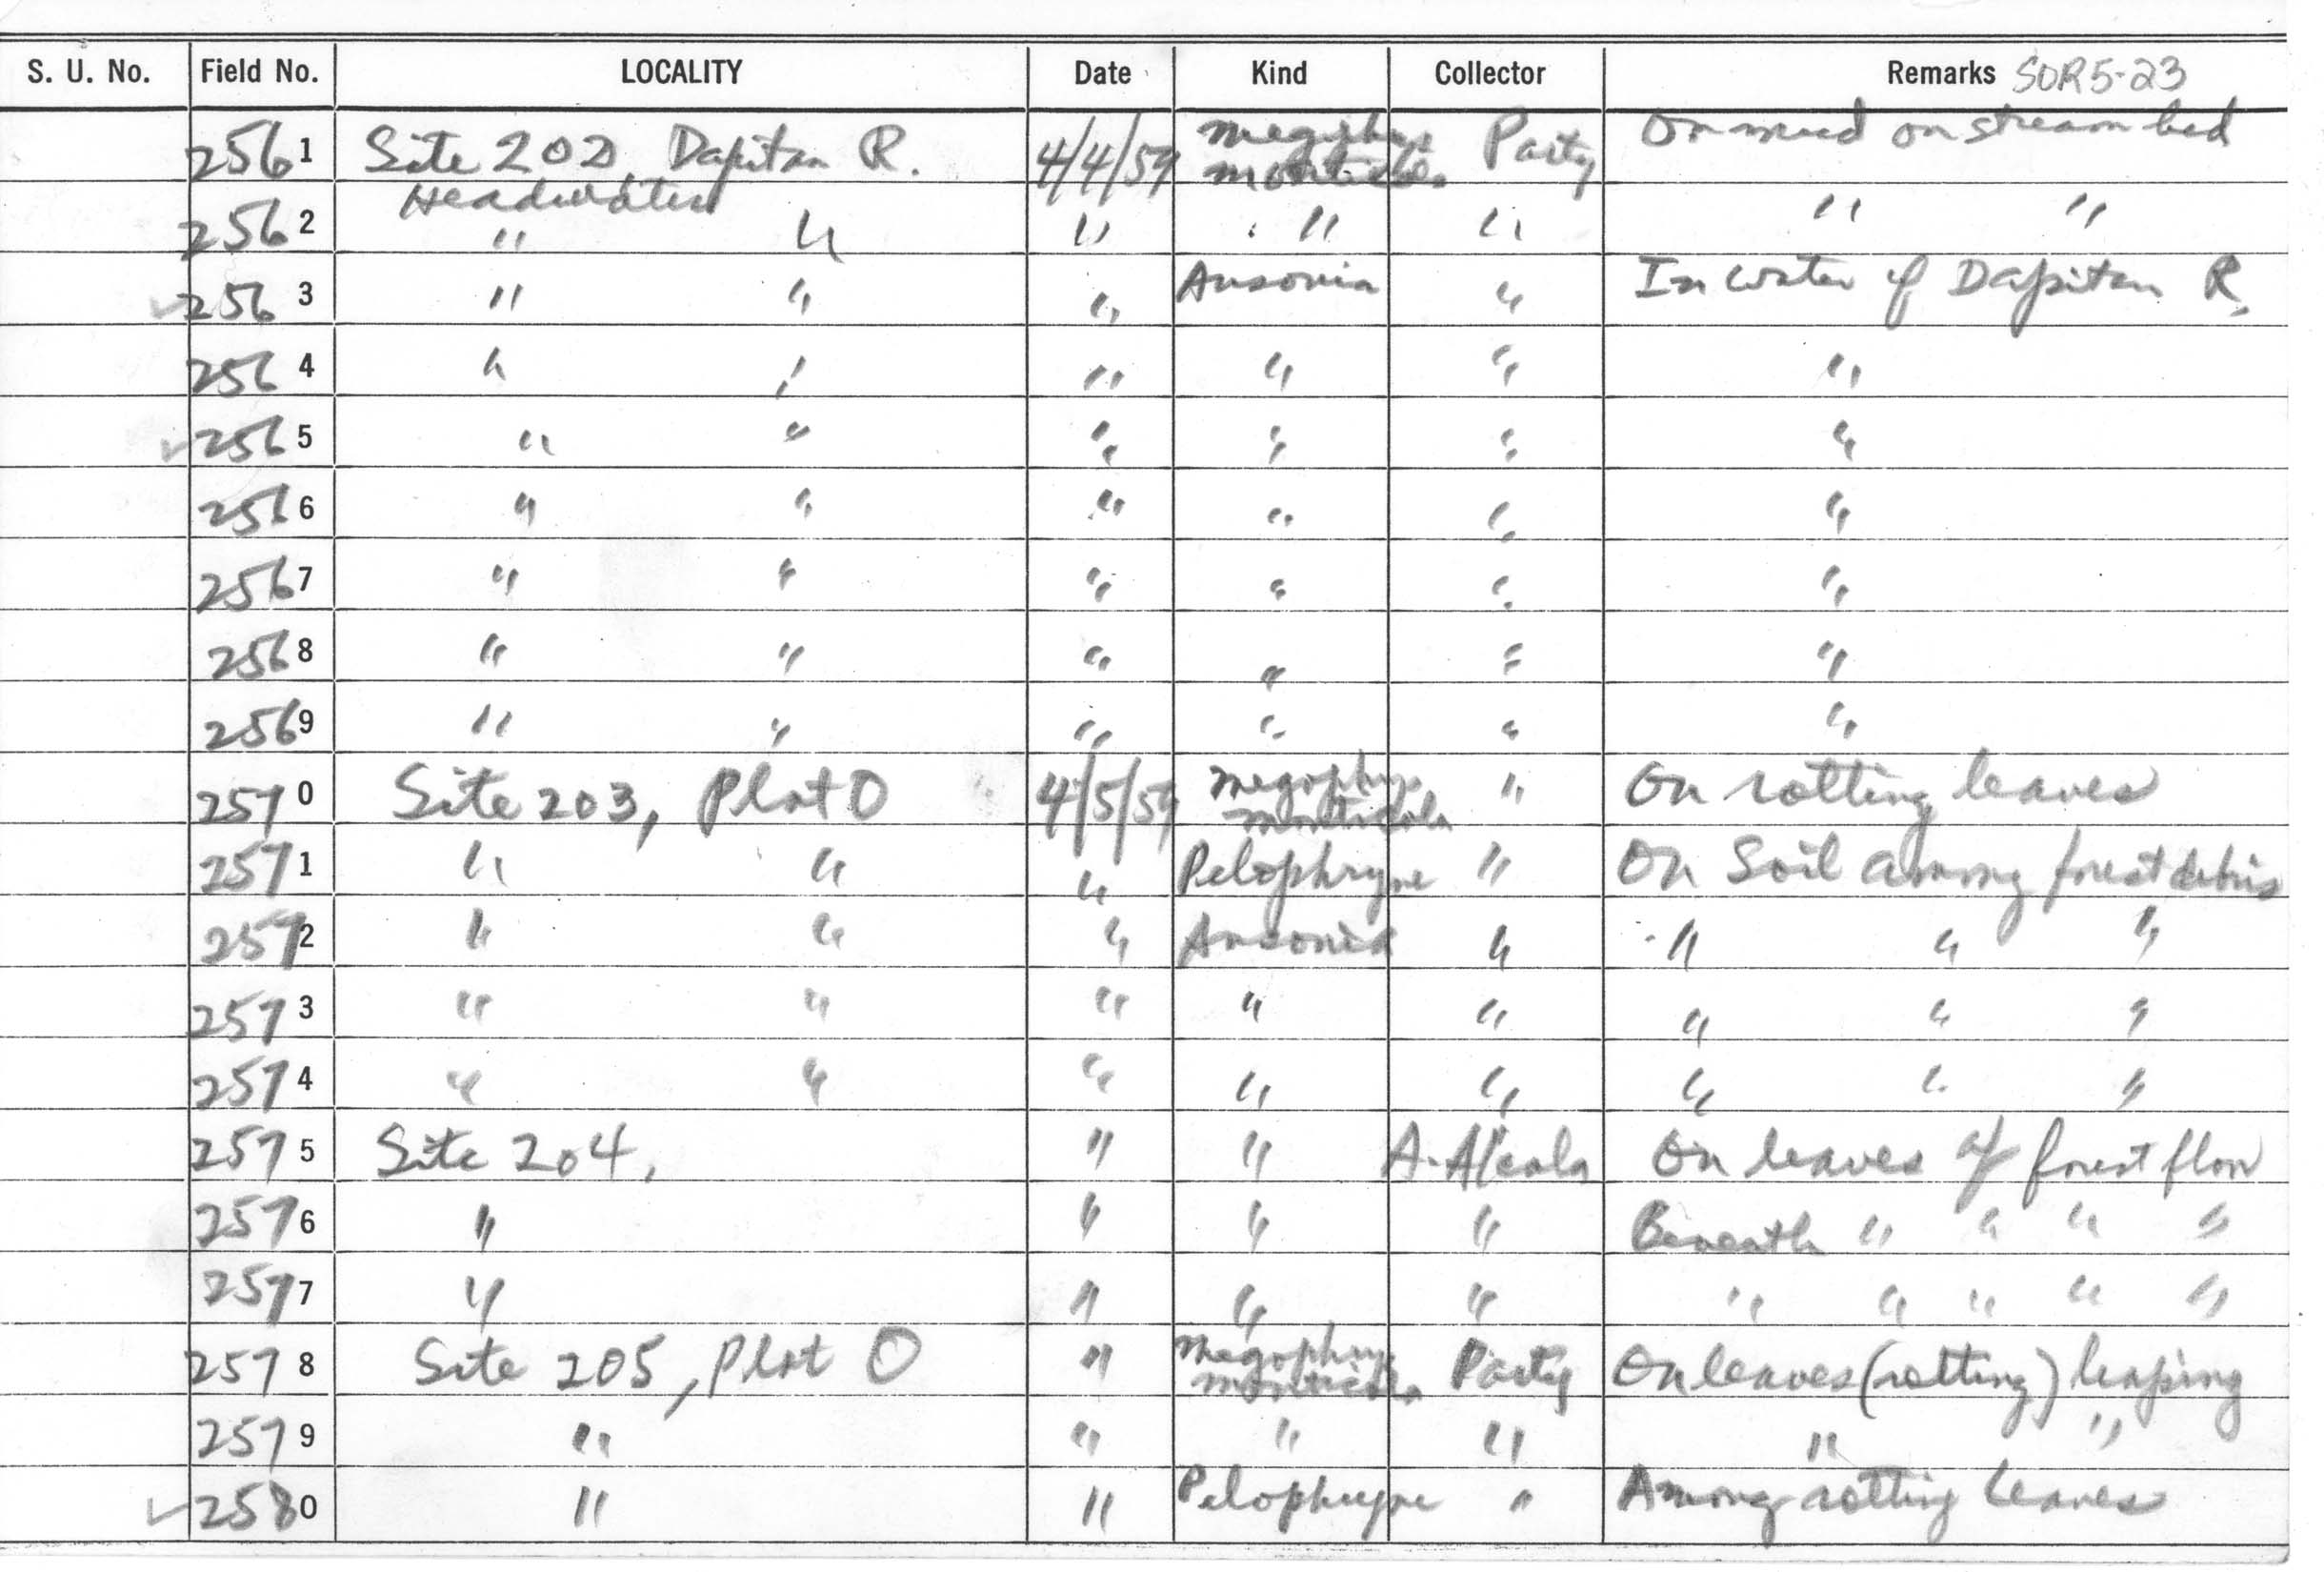 S. U. No. Field No. LOCALITY Date Kind Collector Remarks SOR5-23
2561 Site 202 Dapitan R. Headwaters 4/4/59 Megophrys monticola Party On mud on stream bed
2562 " " " " " " "
2563 " " " Ansonia " In water of Dapitan R.
2564 " " " " " "
2565 " " " " " "
2566 " " " " " "
2567 " " " " " "
2568 " " " " " "
2569 " " " " " "
2570 Site 203, Plot O 4/5/59 Megophrys monticola " On rotting leaves
2571 " " " Pelophryne " On Soil among forest debris
2572 " " " Ansonia " " " "
2573 " " " " " " " "
2574 " " " " " " " "
2575 Site 204, " " A. Alcala On leaves of forest floor
2576 " " " " Beneath " " " "
2577 " " " " " " " " "
2578 Site 205, Plot O " Megophrys monticola Party On leaves (rotting) leaping
2579 " " " " " "
2580 " " Pelophryne " Among rotting leaves